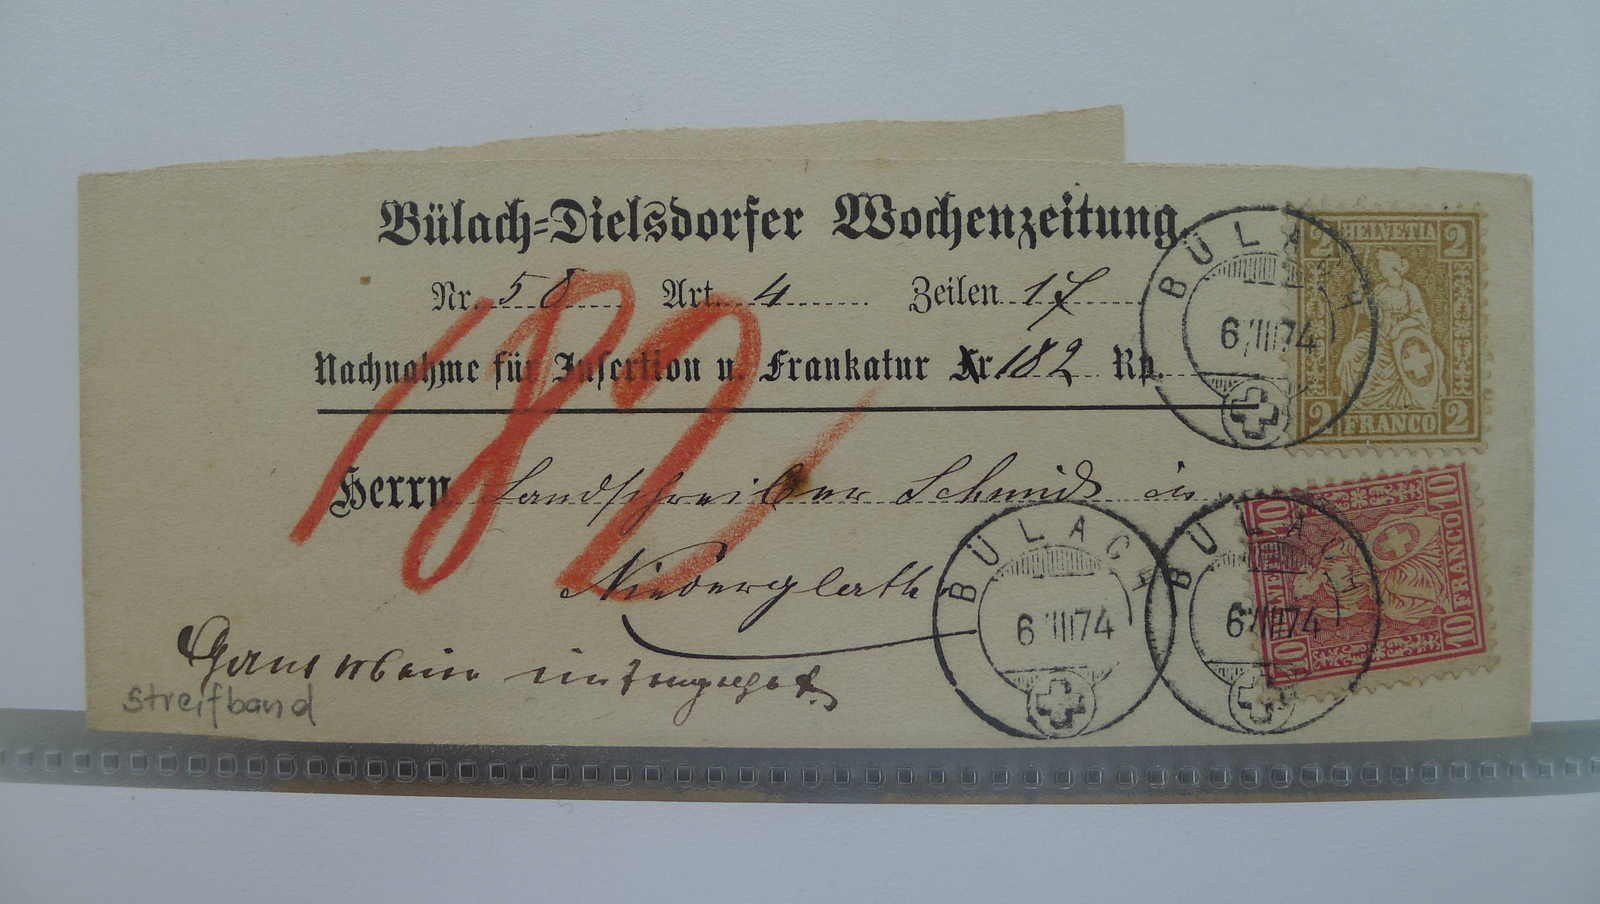 Bülach-Dielsdorfer Wochenzeitung.
Nr. 58 Art. 4 Zeilen 17
Nachnahme für Insertion u. Frankatur Fr. 182 Rp.
182
Herrn Landschreiber Schmid in
Niederglatt
Streifband
BÜLACH
6 VIII 74
2 HELVETIA 2
2 FRANCO 2
BÜLACH
6 VIII 74
BÜLACH
6 VIII 74
10 HELVETIA 10
10 FRANCO 10